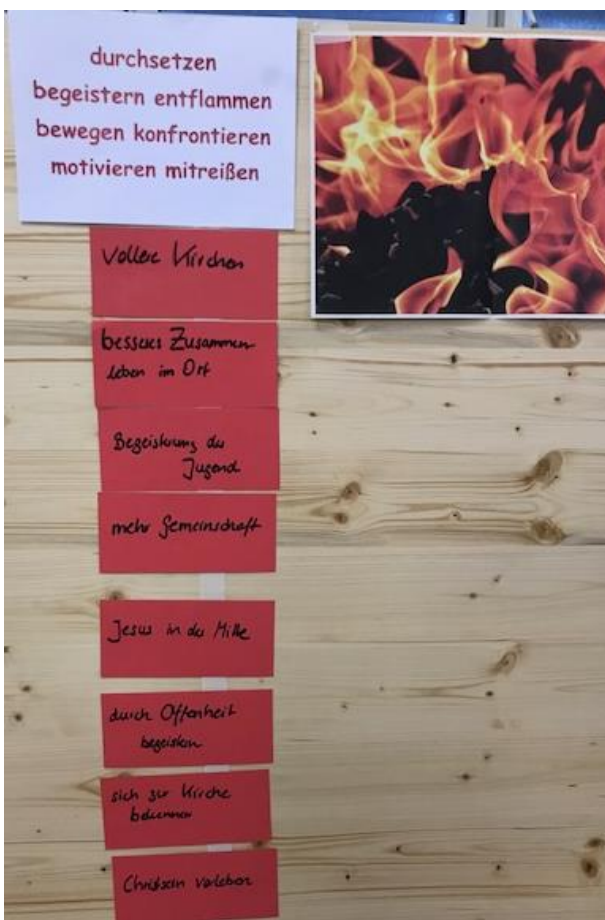 durchsetzen
begeistern entflammen
bewegen konfrontieren
motivieren mitreißen
vollere Kirchen
besseres Zusammen-
leben im Ort
Begeisterung der
Jugend
mehr Gemeinschaft
Jesus in der Mitte
durch Offenheit
begeistern
sich zur Kirche
bekennen
Christsein vorleben